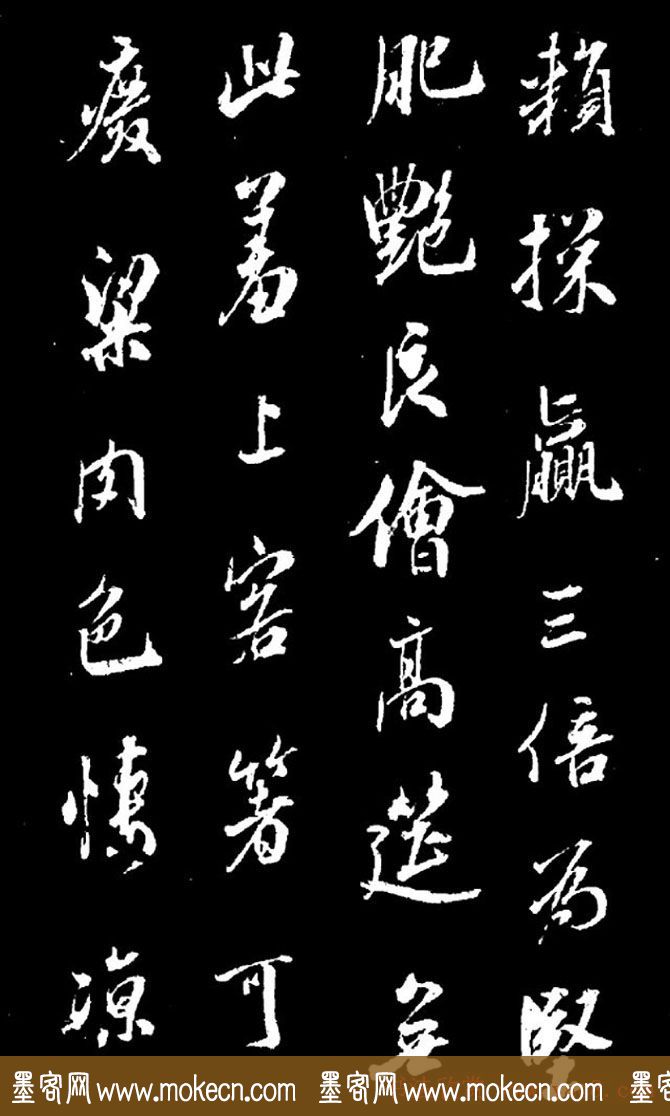 頼採贏三倍為堅
肥艷儈高筵無
此羞上客箸可
廢粱肉色凉
墨客网 www.mokecn.com 墨客网 www.mokecn.com 墨客网